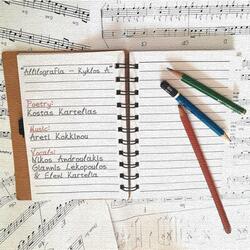 "Allilografia – Kyklos A"
Poetry:
Kostas Kartelias
Music:
Areti Kokkinou
Vocals:
Nikos Androulakis
Giannis Lekopoulos
& Eleni Kartelia